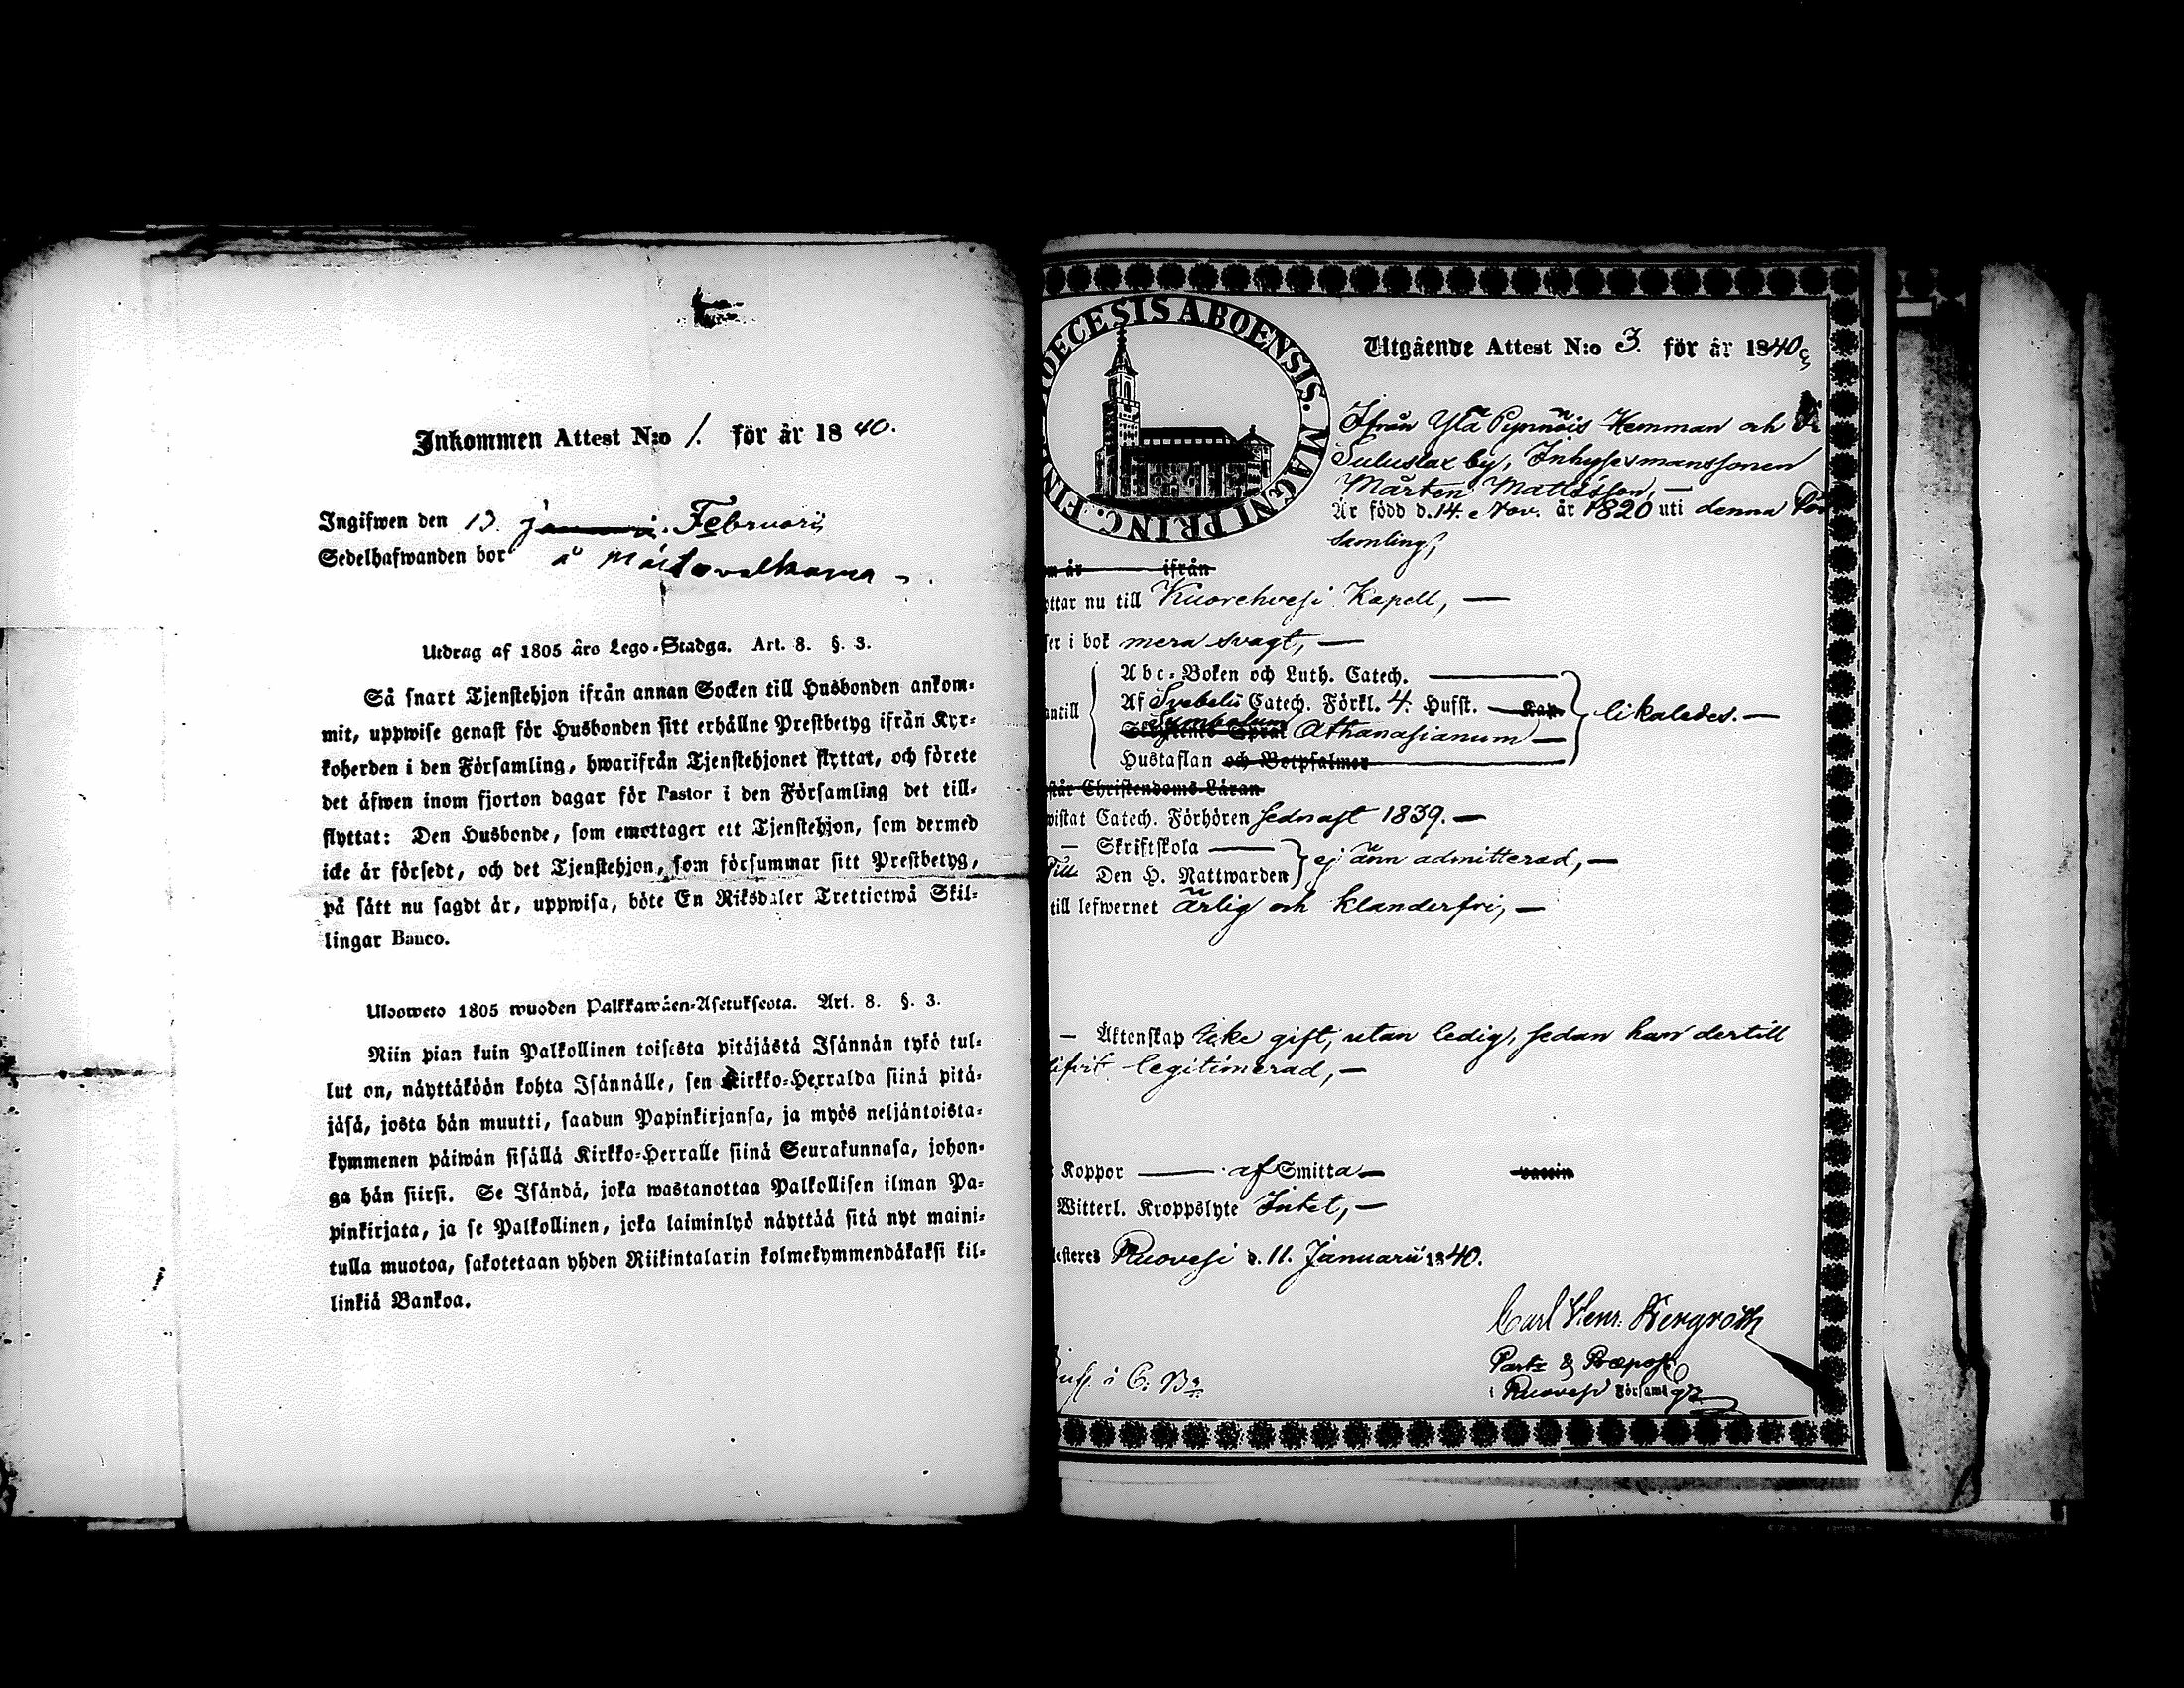 Inkommen Attest N:o 1. för år 1840.
Ingifwen den 13. Februarii
Sedelhafwanden bor å
Utdrag af 1805 års Lego-Stadga. Art. 8. §. 3.
Så snart Tjenstehjon ifrån annan Socken till Husbonden ankom-
mit, uppwise genast för Husbonden sitt erhållne Prestbetyg ifrån Kyr-
koherden i den Församling, hwarifrån Tjenstehjonet flyttat, och förete
det äfwen inom fjorton dagar för Pastor i den Församling det till-
flyttat: Den Husbonde, som emottager ett Tjenstehjon, som dermed
icke är försedt, och det Tjenstehjon, som försummar sitt Prestbetyg,
på sätt nu sagdt är, uppwisa, böte En Riksdaler Trettiotwå Skil-
lingar Banco.
Ulosweto 1805 wuoden Palkkawäen-Asetuksesta. Art. 8. §. 3.
Niin pian kuin Palkollinen toisesta pitäjästä Isännän tykö tul-
lut on, näyttäköön kohta Isännälle, sen Kirkko-Herralda siinä pitä-
jäsä, josta hän muutti, saadun Papinkirjansa, ja myös neljäntoista-
kymmenen päiwän sisällä Kirkko-Herralle siinä Seurakunnasa, johon-
ga hän siirsi. Se Isändä, joka wastanottaa Palkollisen ilman Pa-
pinkirjata, ja se Palkollinen, joka laiminlyö näyttää sitä nyt maini-
tulla muotoa, sakotetaan yhden Riikintalarin kolmekymmendäkaksi kil-
linkiä Bankoa.
DIOECESIS ABOENSIS. MAGNI PRINC. FIN
Utgående Attest N:o 3. för år 1840
Ifrån Ylä Pynnöis Hemman och
Suluslax by, Inhysesmanssonen
Mårten Mattsson, —
Är född d. 14. Nov. år 1820 uti denna För
samling,
ifrån
ttar nu till Kuorehvesi Kapell, —
ser i bok mera svagt, —
Abc-Boken och Luth. Catech.
antill Af Svebelii Catech. Förkl. 4. Hufst. Kap. likaledes. —
Symbolum Athanasianum —
Hustaflan och Botpsalmer
står Christendoms-Läran
wistat Catech. Förhören sednast 1839. —
— Skriftskola — ej änn admitterad, —
Till Den H. Nattwarden
till lefwernet ärlig och klanderfri, —
— Äktenskap Icke gift, utan ledig, sedan han dertill
legitimerad, —
Koppor — af Smitta — vaccin
Witterl. Kroppslyte Intet, —
esteres Ruovesi d. 11. Januarii 1840.
Carl Henr. Bergroth
Past: & Præpost
i Ruovesi Församl
i C: Br